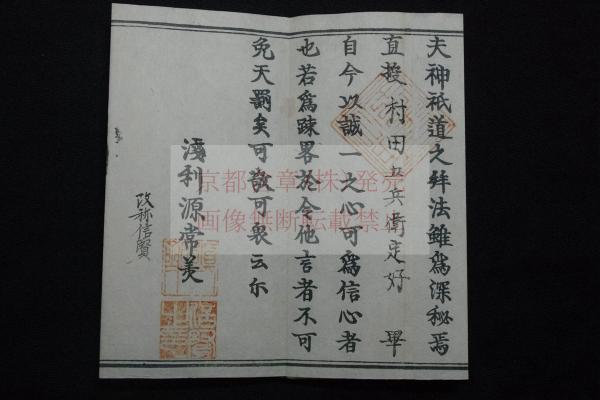 夫神祇道之拜法雖爲深秘焉
直授 村田五兵衛定好 畢
自今以誠一之心可爲信心者
也若爲踈畧於令他言者不可
免天罰矣可敬可畏云尓
淺利源常美
改称信賢
京都 章(株)発売
画像無断転載禁止